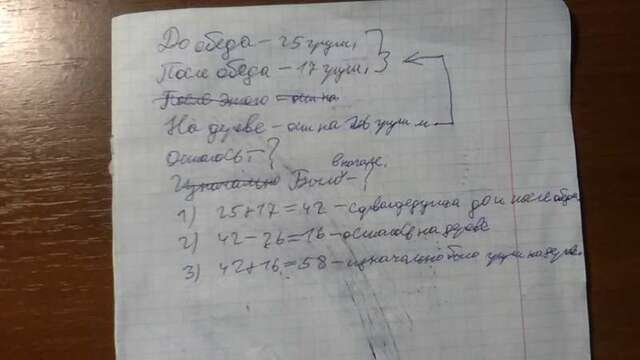 До обеда - 25 груш,
После обеда - 17 груш, 3
После этого =
На дереве - на 26 груш м
Осталось - ?
вначале,
Изначально Было - ?
1) 25+17=42 - до и после
2) 42-26=16 - осталось на дереве
3) 42+16=58 - изначально было груш на дереве.